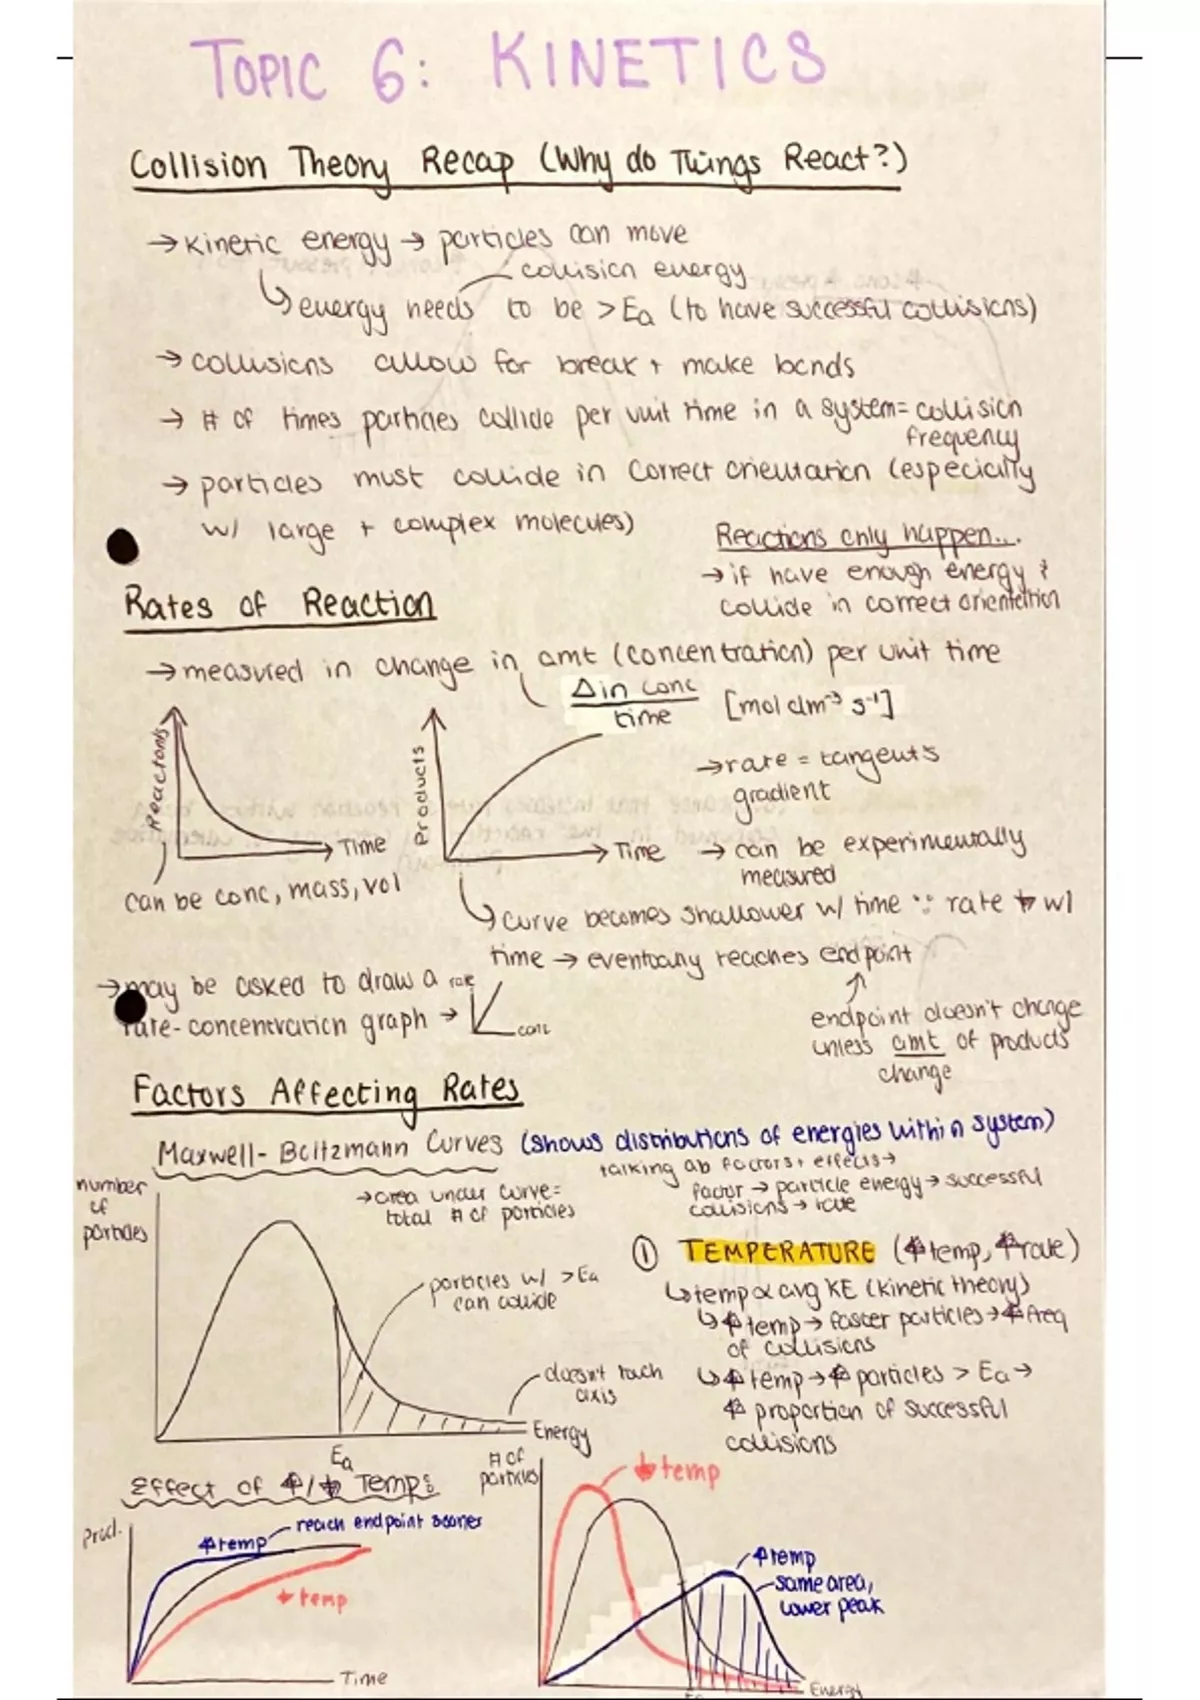 TOPIC 6: KINETICS
Collision Theory Recap (Why do Things React?)
→ kinetic energy → particles can move
collision energy
↳ energy needs to be > Ea (to have successful collisions)
→ collisions allow for break + make bonds
→ # of times particles collide per unit time in a system = collision
frequency
→ particles must collide in correct orientation (especially
w/ large + complex molecules)
Reactions only happen...
→ if have enough energy &
collide in correct orientation
Rates of Reaction
→ measured in change in amt (concentration) per unit time
Δ in conc
time
[mol dm⁻³ s⁻¹]
Reactants
Time
can be conc, mass, vol
Products
Time
→ rate = tangent's
gradient
→ can be experimentally
measured
↳ curve becomes shallower w/ time ∵ rate ↓ w/
time → eventually reaches endpoint
endpoint doesn't change
unless amt of products
change
→ may be asked to draw a
rate-concentration graph →
rate
conc
Factors Affecting Rates
Maxwell-Boltzmann Curves (shows distributions of energies within system)
talking ab factors + effects →
factor → particle energy → successful
collisions → rate
number
of
particles
→ area under curve =
total # of particles
particles w/ > Ea
can collide
doesn't touch
axis
Energy
Ea
① TEMPERATURE (↑ temp, ↑ rate)
↳ temp ∝ avg KE (kinetic theory)
↳ ↑ temp → faster particles → ↑ freq
of collisions
↳ ↑ temp → ↑ particles > Ea →
↑ proportion of successful
collisions
Effect of ↑/↓ Temp:
Prod.
↑ temp
reach endpoint sooner
↓ temp
Time
# of
particles
↓ temp
↑ temp
same area,
lower peak
Ea
Energy